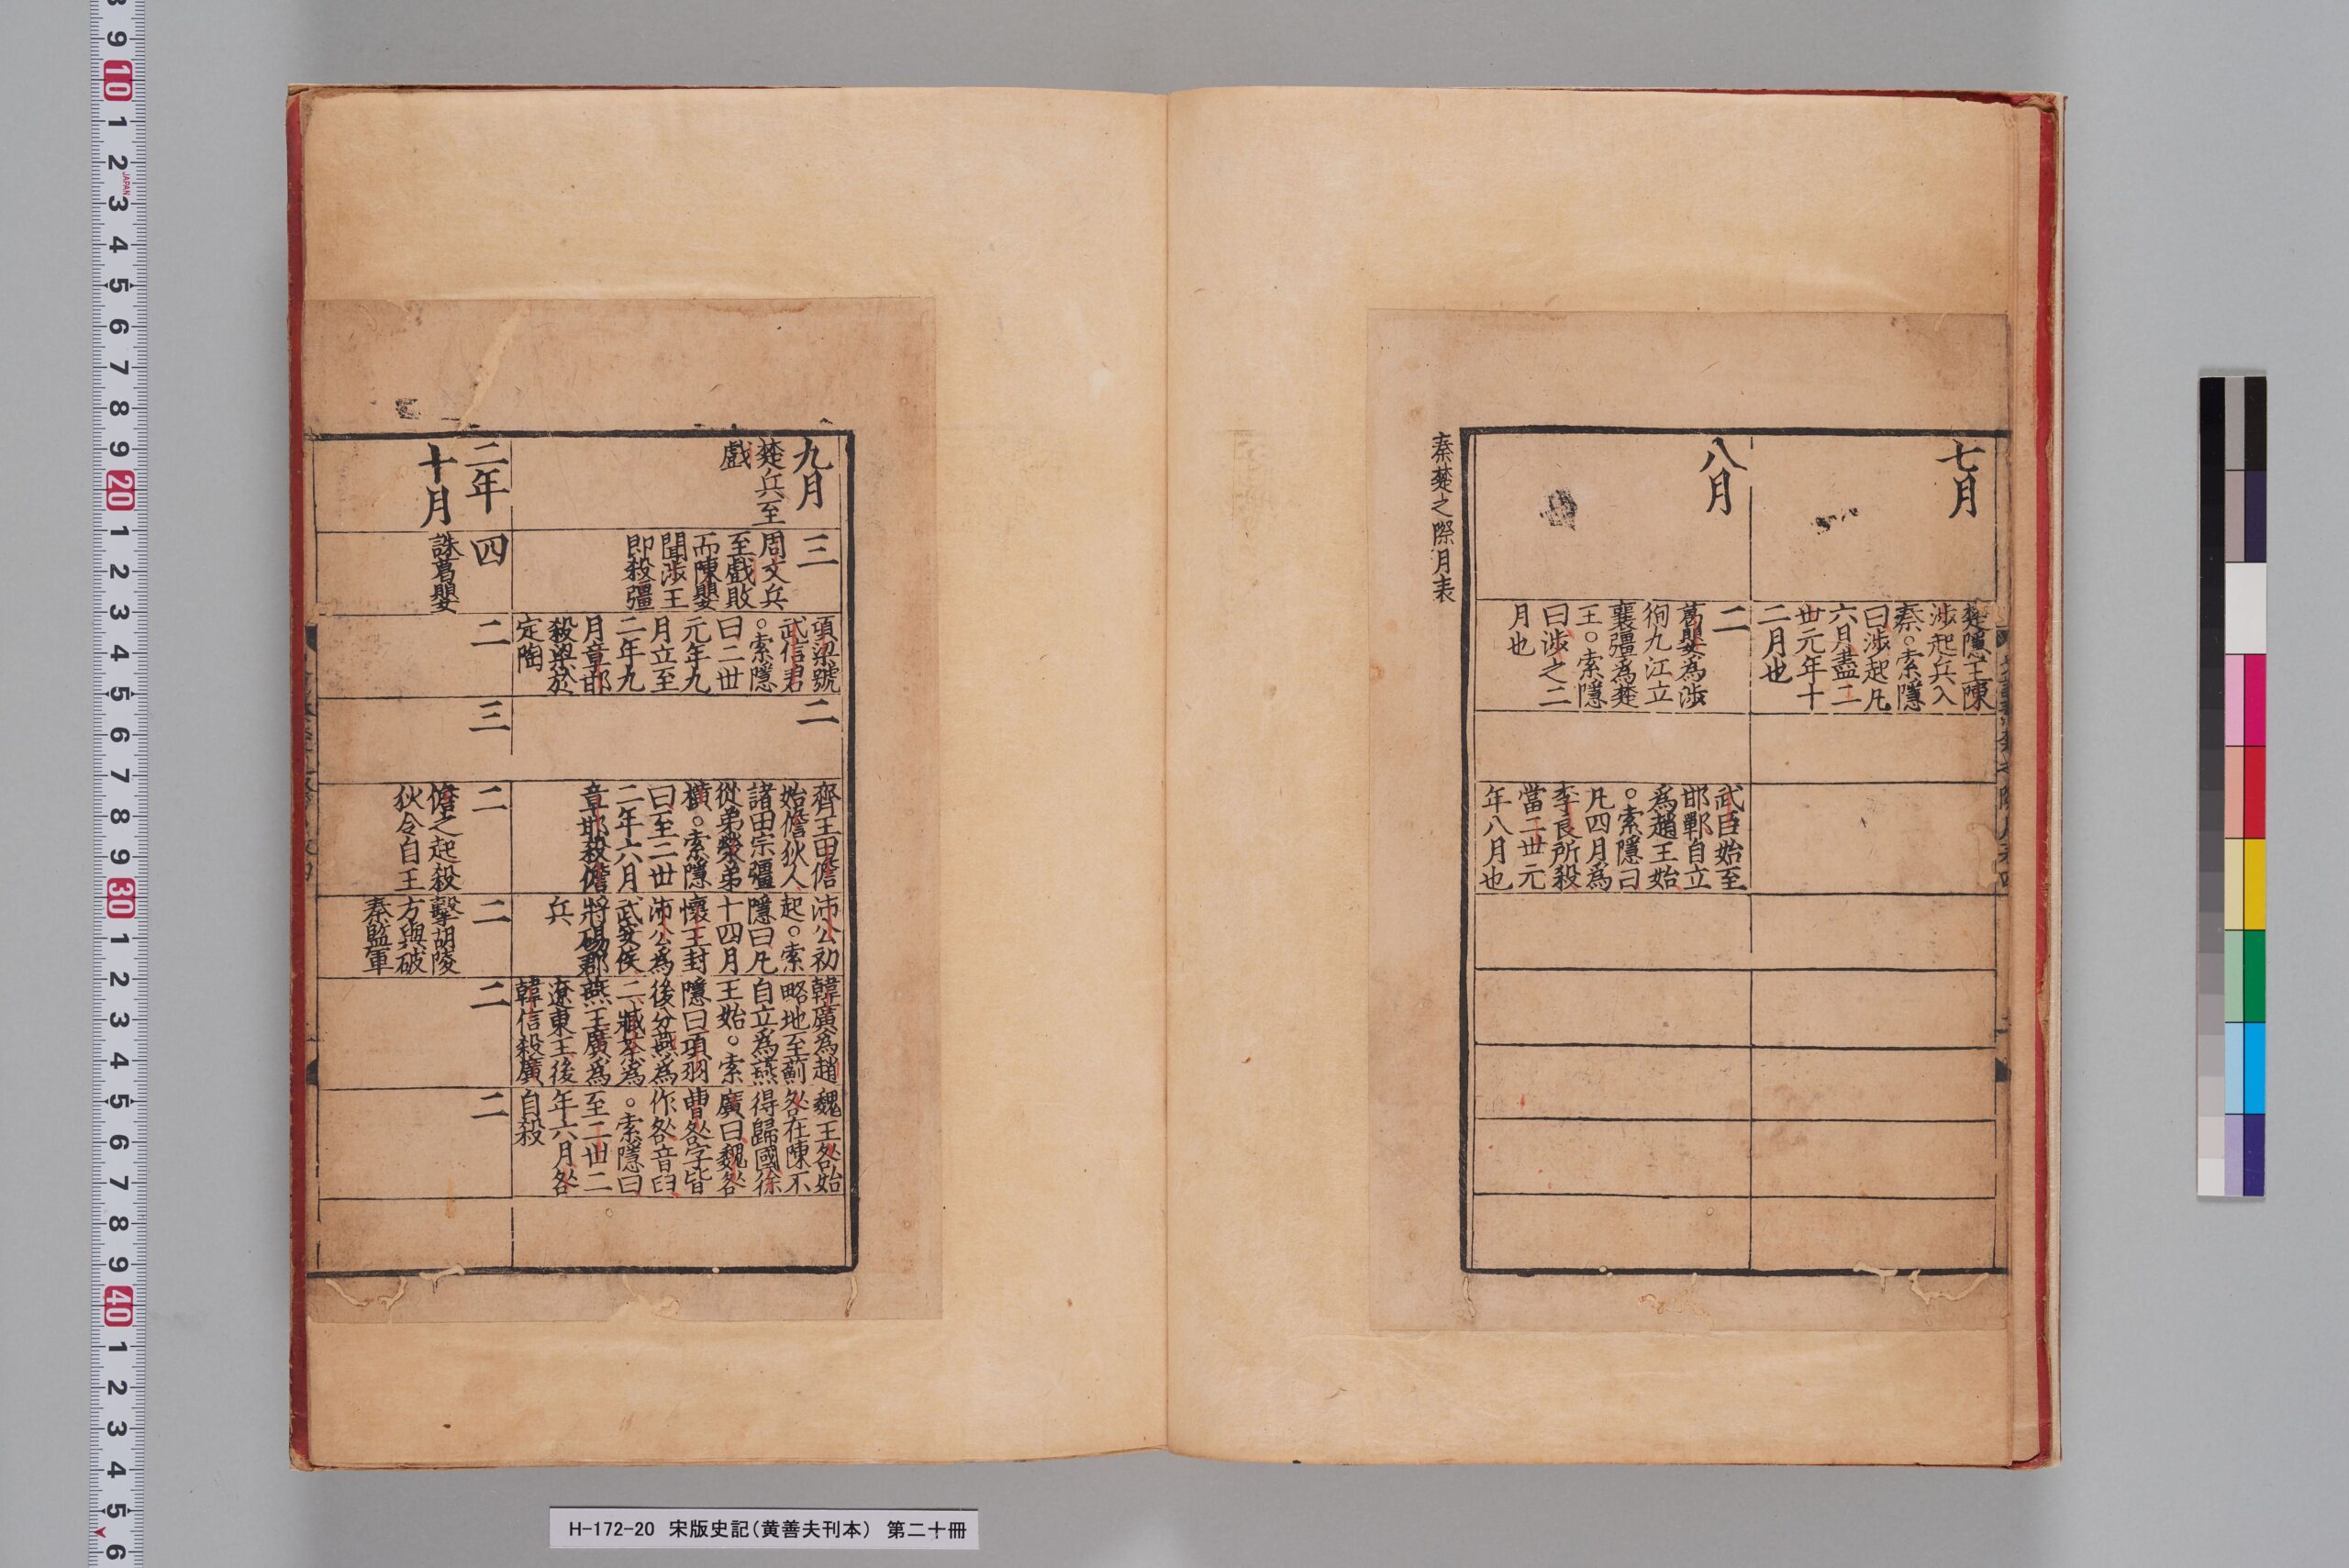 七月
楚隱王陳
涉起兵入
秦○索隱
曰涉起凡
六月盡二
丗元年十
二月也
八月
二
葛嬰爲涉
徇九江立
襄彊爲楚
王○索隱
曰涉之二
月也
武臣始至
邯鄲自立
爲趙王始
○索隱曰
凡四月爲
李良所殺
當二丗元
年八月也
秦楚之際月表
九月
楚兵至
戲
三
周文兵
至戲敗
而陳嬰
聞涉王
即殺彊
項梁號
武信君
○索隱
曰二丗
元年九
月立至
二年九
月章邯
殺梁於
定陶
二
齊王田儋
始儋狄人
諸田宗彊
從弟榮弟
橫○索隱
曰至二丗
二年六月
章邯殺儋
沛公初
起○索
隱曰凡
十四月
懷王封
沛公爲
武安侯
將碭郡
兵
韓廣爲趙
略地至薊
自立爲燕
王始○索
隱曰項羽
後分燕爲
二臧荼爲
燕王廣爲
遼東王後
韓信殺廣
魏王咎始
咎在陳不
得歸國徐
廣曰魏咎
曹咎字皆
作咎音臼
○索隱曰
至二丗二
年六月咎
自殺
二年
十月
四
誅葛嬰
二
三
二
儋之起殺
狄令自王
二
擊胡陵
方與破
秦監軍
二
二
H-172-20 宋版史記(黄善夫刊本) 第二十冊